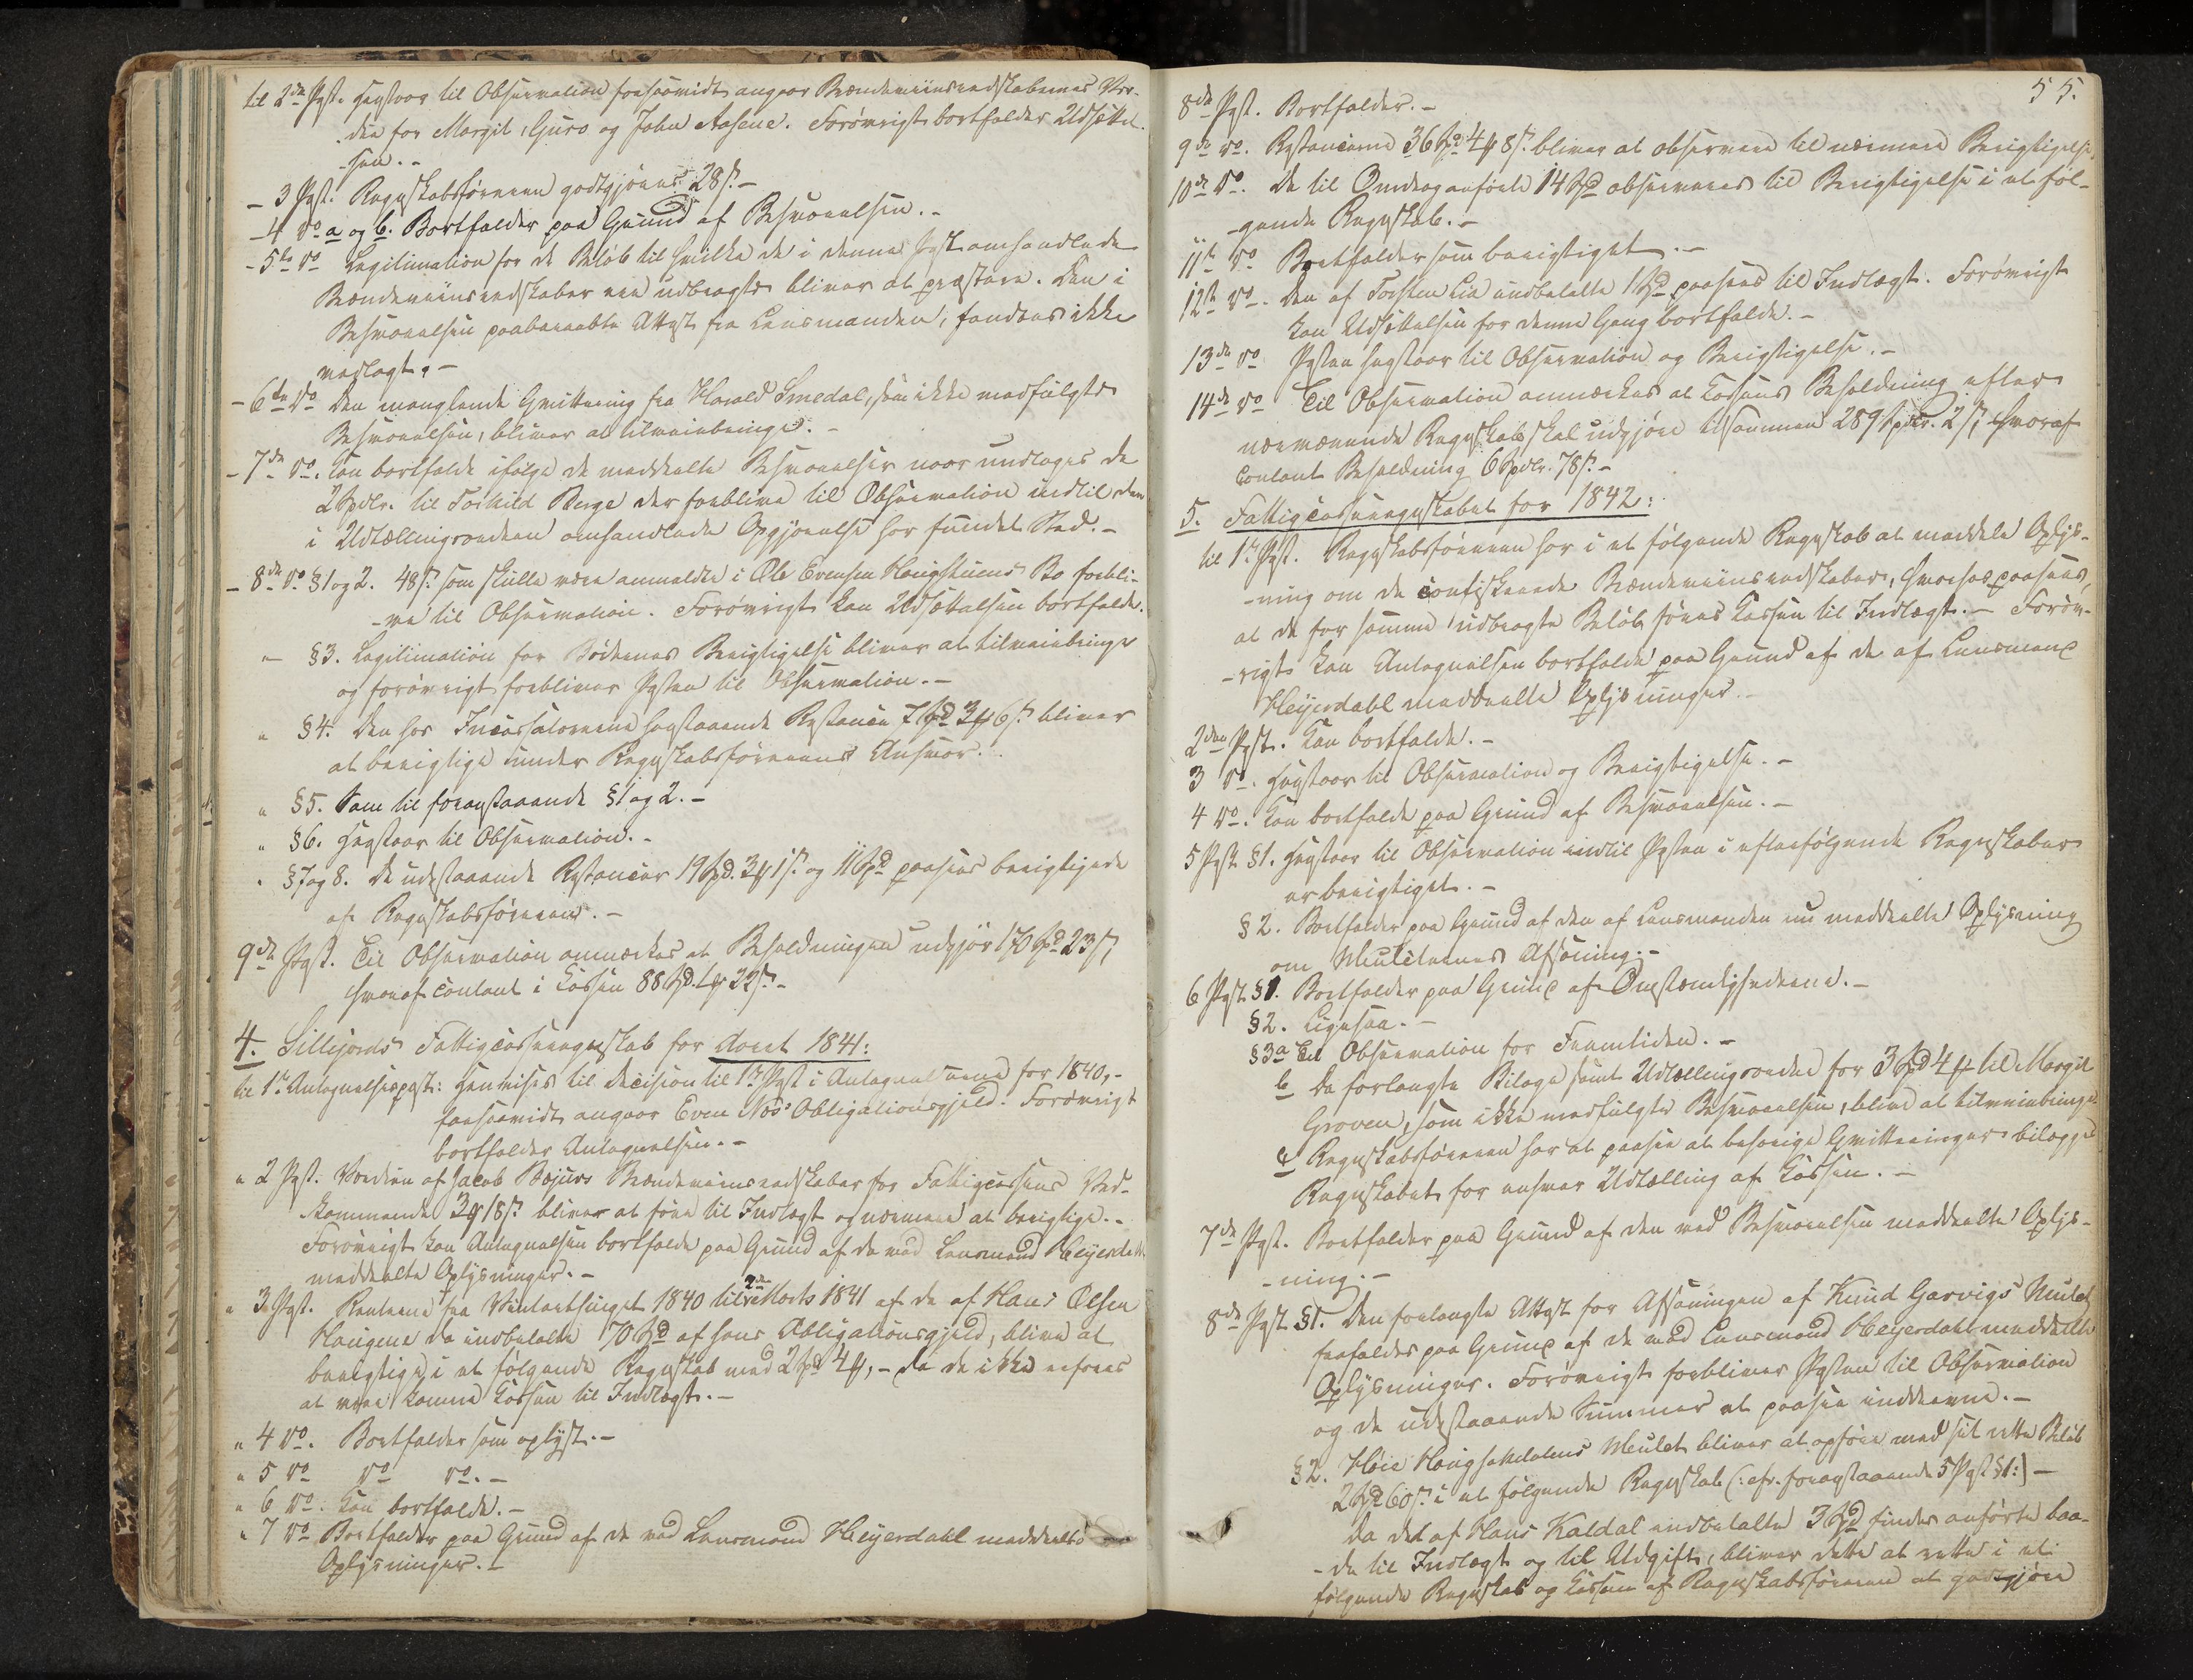 til 2den Pgst. Henstaar til Observation forsaavidt angaar Brændeviinsredskabernes Vær-
die for Margit, Guro og John Aasene. Forøvrigt bortfalder Udsættel-
sen.-
- 3 Post. Regnskabsføreren godtgjøres 28 s.-
- 4 do a og b. Bortfalder paa Grund af Besvarelsen.-
- 5te do Legitimation for de Beløb til hvilke de i denne Post omhandlede
Brændeviinsredskaber ere udbragte bliver at præstere. Den i
Besvarelsen paaberaabte Attest fra Lensmanden, fandtes ikke
vedlagt.-
- 6te do Den manglende Qvittering fra Harald Smedal, som ikke medfulgte
Besvarelsen, bliver at tilveiebringe.-
- 7de do. Kan bortfalde ifølge de meddeelte Besvarelser naar undtages de
2 Spdlr. til Torkild Berge der forblive til Observation indtil den
i Udtællingsordren omhandlede Opgjørelse har fundet Sted.-
- 8de do §1 og 2. 48 s. som skulle være anmeldte i Ole Evensen Haugstuens Bo forbli-
-ve til Observation. Forøvrigt kan Udsættelsen bortfalde.
" §3. Legitimation for Bødernes Berigtigelse bliver at tilveiebringe
og forøvrigt forbliver Posten til Observation.-
" §4. Den hos Incassatorerne henstaaende Restance 7 Spd 3 # 6 s. bliver
at berigtige under Regnskabsførerens Ansvar.
" §5. Som til foranstaaende §1 og 2.-
" §6. Henstaar til Observation.-
" §7 og 8. De udestaaende Restancer 19 Spd. 3 # 1 s. og 11 Spd paasees berigtigede
af Regnskabsføreren.-
9de Post. Til Observation anmærkes at Beholdningen udgjør 170 Spd 23 s,
hvoraf contant i Kassen 88 Spd. 22 s.-
4. Sillejords Fattigcasseregnskab for Aaret 1841:
til 1ste Antegnelsespost: Henvises til Decision til 1ste Post i Antegnelserne for 1840,-
forsaavidt angaar Even Nøs' Obligationsgjeld. Forøvrigt
bortfalder Antegnelsen.-
" 2 Post. Værdien af Jacob Bøjurs Brændeviinsredskaber for Fattigcassens Ved-
kommende 3 # 18 s. bliver at føre til Indtægt og nærmere at berigtige.-
Forøvrigt kan Antegnelsen bortfalde paa Grund af de ved Lensmand Heyerdahl
meddeelte Oplysninger.-
" 3 Post. Renterne fra Vintertinget 1840 til 2den Marts 1841 af de af Hans Olsen
Haugene da indbetalte 170 Spd af hans Obligationsgjeld, blive at
berigtige i et følgende Regnskab med 2 Spd 4 #,- da de ikke erfares
at være komne Kassen til Indtægt.-
" 4 do. Bortfalder som oplyst.-
" 5 do do do.-
" 6 do. Kan bortfalde.-
" 7 do Bortfalder paa Grund af de ved Lensmand Heyerdahl meddeelte
Oplysninger.-
55.
8de Post. Bortfalder.-
9de do. Restancerne 36 Spd 4 # 8 s. bliver at observere til nærmere Berigtigelse.
10de do. De til Omdrag anførte 14 Spd observeres til Berigtigelse i et føl-
-gende Regnskab.-
11te do Bortfalder som berigtiget.-
12te do. Den af Torsten Lia indbetalte 1 Spd paasees til Indtægt. Forøvrigt
kan Udsættelsen for denne Gang bortfalde.-
13de do Posten henstaar til Observation og Berigtigelse.-
14de do Til Observation anmærkes at Kassens Beholdning efter
nærværende Regnskab skal udgjøre tilsammen 289 Spdlr. 2 s, hvoraf
contant Beholdning 6 Spdlr. 78 s.-
5. Fattigcasseregnskabet for 1842:
til 1ste Post. Regnskabsføreren har i et følgende Regnskab at meddele Oplys-
-ning om de confiskerede Brændeviinsredskaber, hvorhos paasees,
at de for samme udbragte Beløb føres Kassen til Indtægt.- Forøv-
-rigt kan Antegnelsen bortfalde paa Grund af de af Lensmand
Heyerdahl meddeelte Oplysninger.-
2den Post. Kan bortfalde.-
3 do. Henstaar til Observation og Berigtigelse.-
4 do. Kan bortfalde paa Grund af Besvarelsen.-
5 Post §1. Henstaar til Observation indtil Posten i efterfølgende Regnskaber
er berigtiget.-
§2. Bortfalder paa Grund af den af Lensmanden nu meddeelte Oplysning
om Mulcternes Afsoning.-
6 Post §1. Bortfalder paa Grund af Omstændighederne.-
§2. Ligesaa.-
§3 a Til Observation for Fremtiden.-
b De forlangte Bilage samt Udtællingsordre for 3 Spd 4 # til Margit
Groven, som ikke medfulgte Besvarelsen, blive at tilveiebringe
c Regnskabsføreren har at paasee at behørige Qvitteringer bilægges
Regnskabet for enhver Udtælling af Kassen.-
7de Post. Bortfalder paa Grund af den ved Besvarelsen meddeelte Oplys-
-ning.-
8de Post §1. Den forlangte Attest for Afsoningen af Knud Garvigs Mulct
frafaldes paa Grund af de ved Lensmand Heyerdahl meddeelte
Oplysninger. Forøvrigt forbliver Posten til Observation
og de udestaaende Summer at paasee inddrevne.-
§2. Høie Haugsekdalens Mulct bliver at opføre med sit rette Beløb
2 Spd 60 s. i et følgende Regnskab (: cfr. foranstaaende 5 Post §1:)-
Da det af Hans Kaldal indbetalte 3 Spd findes anførte baa-
-de til Indtægt og til Udgift, bliver dette at rette i et
følgende Regnskab og Kassen af Regnskabsføreren at godtgjøre